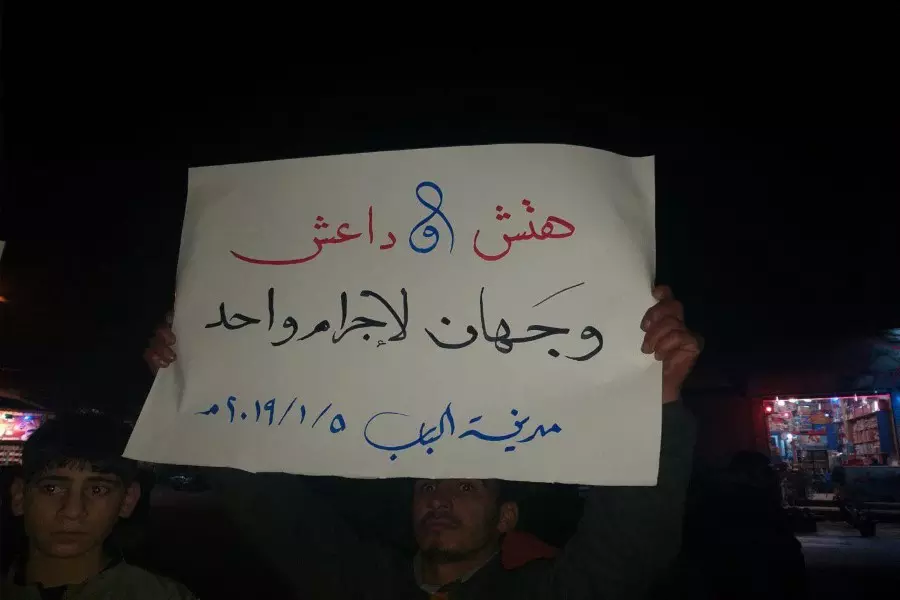 هتش و داعش
وجَهان لإجرام واحد
مدينة الباب ٢٠١٩/١/٥ م